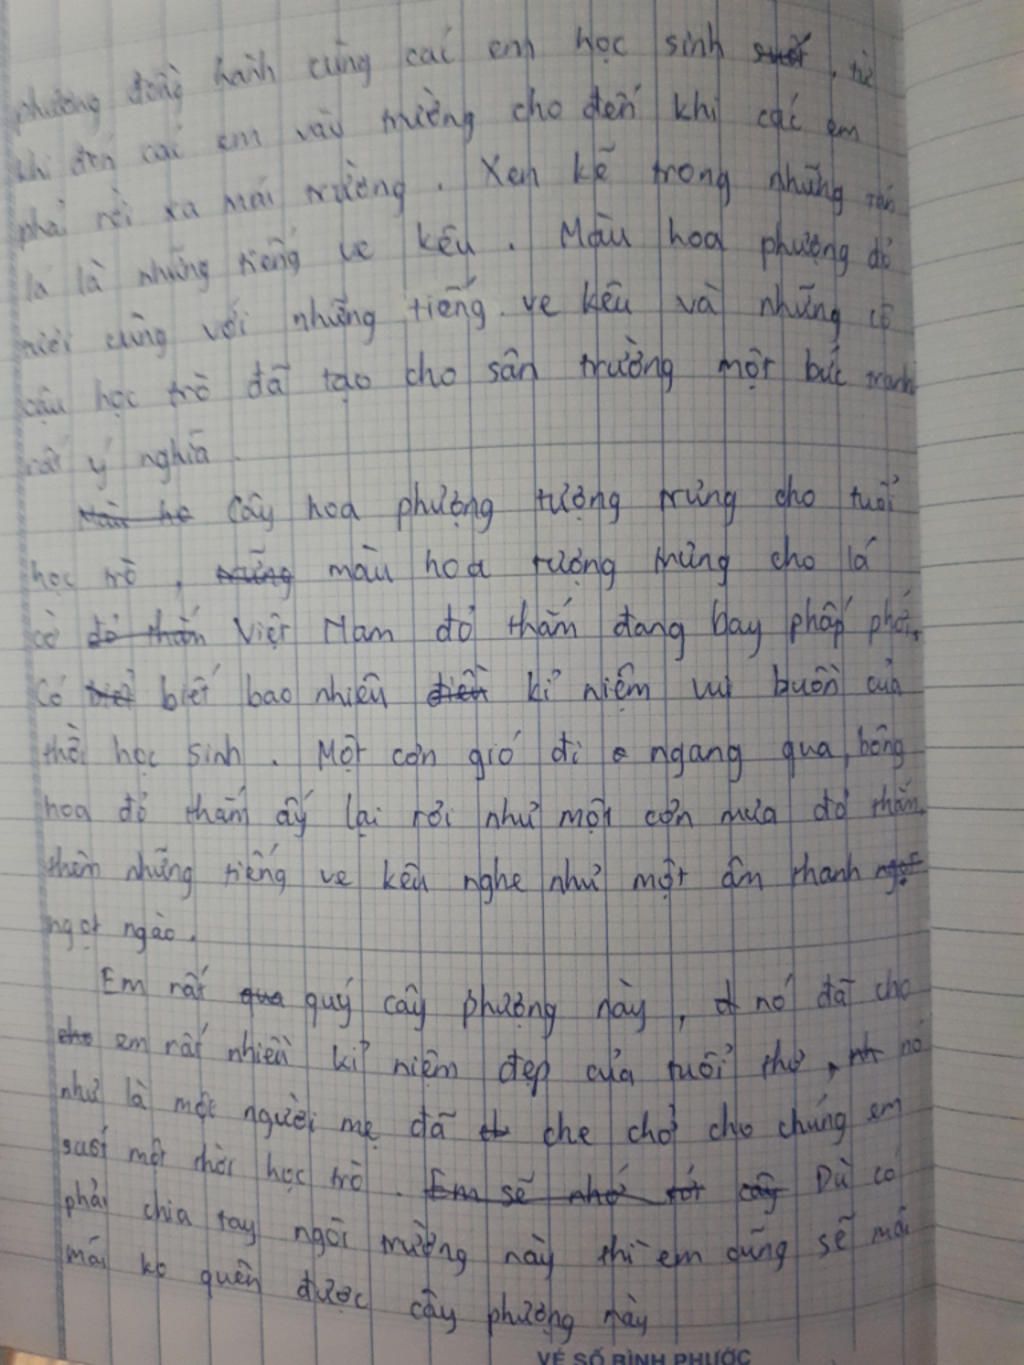 phượng đồng hành cùng các em học sinh suốt, từ
khi đến các em vào trường cho đến khi các em
phải rời xa mái trường. Xen kẽ trong những tán
lá là những tiếng ve kêu. Màu hoa phượng đỏ
cùng với những tiếng ve kêu và những cô
cậu học trò đã tạo cho sân trường một bức tranh
rất ý nghĩa.
Cây hoa phượng tượng trưng cho tuổi
học trò, màu hoa tượng trưng cho lá
cờ đỏ thắm Việt Nam đỏ thắm đang bay phấp phới.
Có biết bao nhiêu kỉ niệm vui buồn của
thời học sinh. Một cơn gió đi ngang qua, bông
hoa đỏ thắm ấy lại rơi như một cơn mưa đỏ thắm.
thêm những tiếng ve kêu nghe như một âm thanh ngọt
ngọt ngào.
Em rất qua quý cây phượng này, nó đã cho
cho em rất nhiều kỉ niệm đẹp của tuổi thơ, nó
như là một người mẹ đã che chở cho chúng em
suốt một thời học trò. Em sẽ nhớ tới cây Dù có
phải chia tay ngôi trường này thì em cũng sẽ mãi
mãi ko quên được cây phượng này
VÉ SỐ BÌNH PHƯỚC